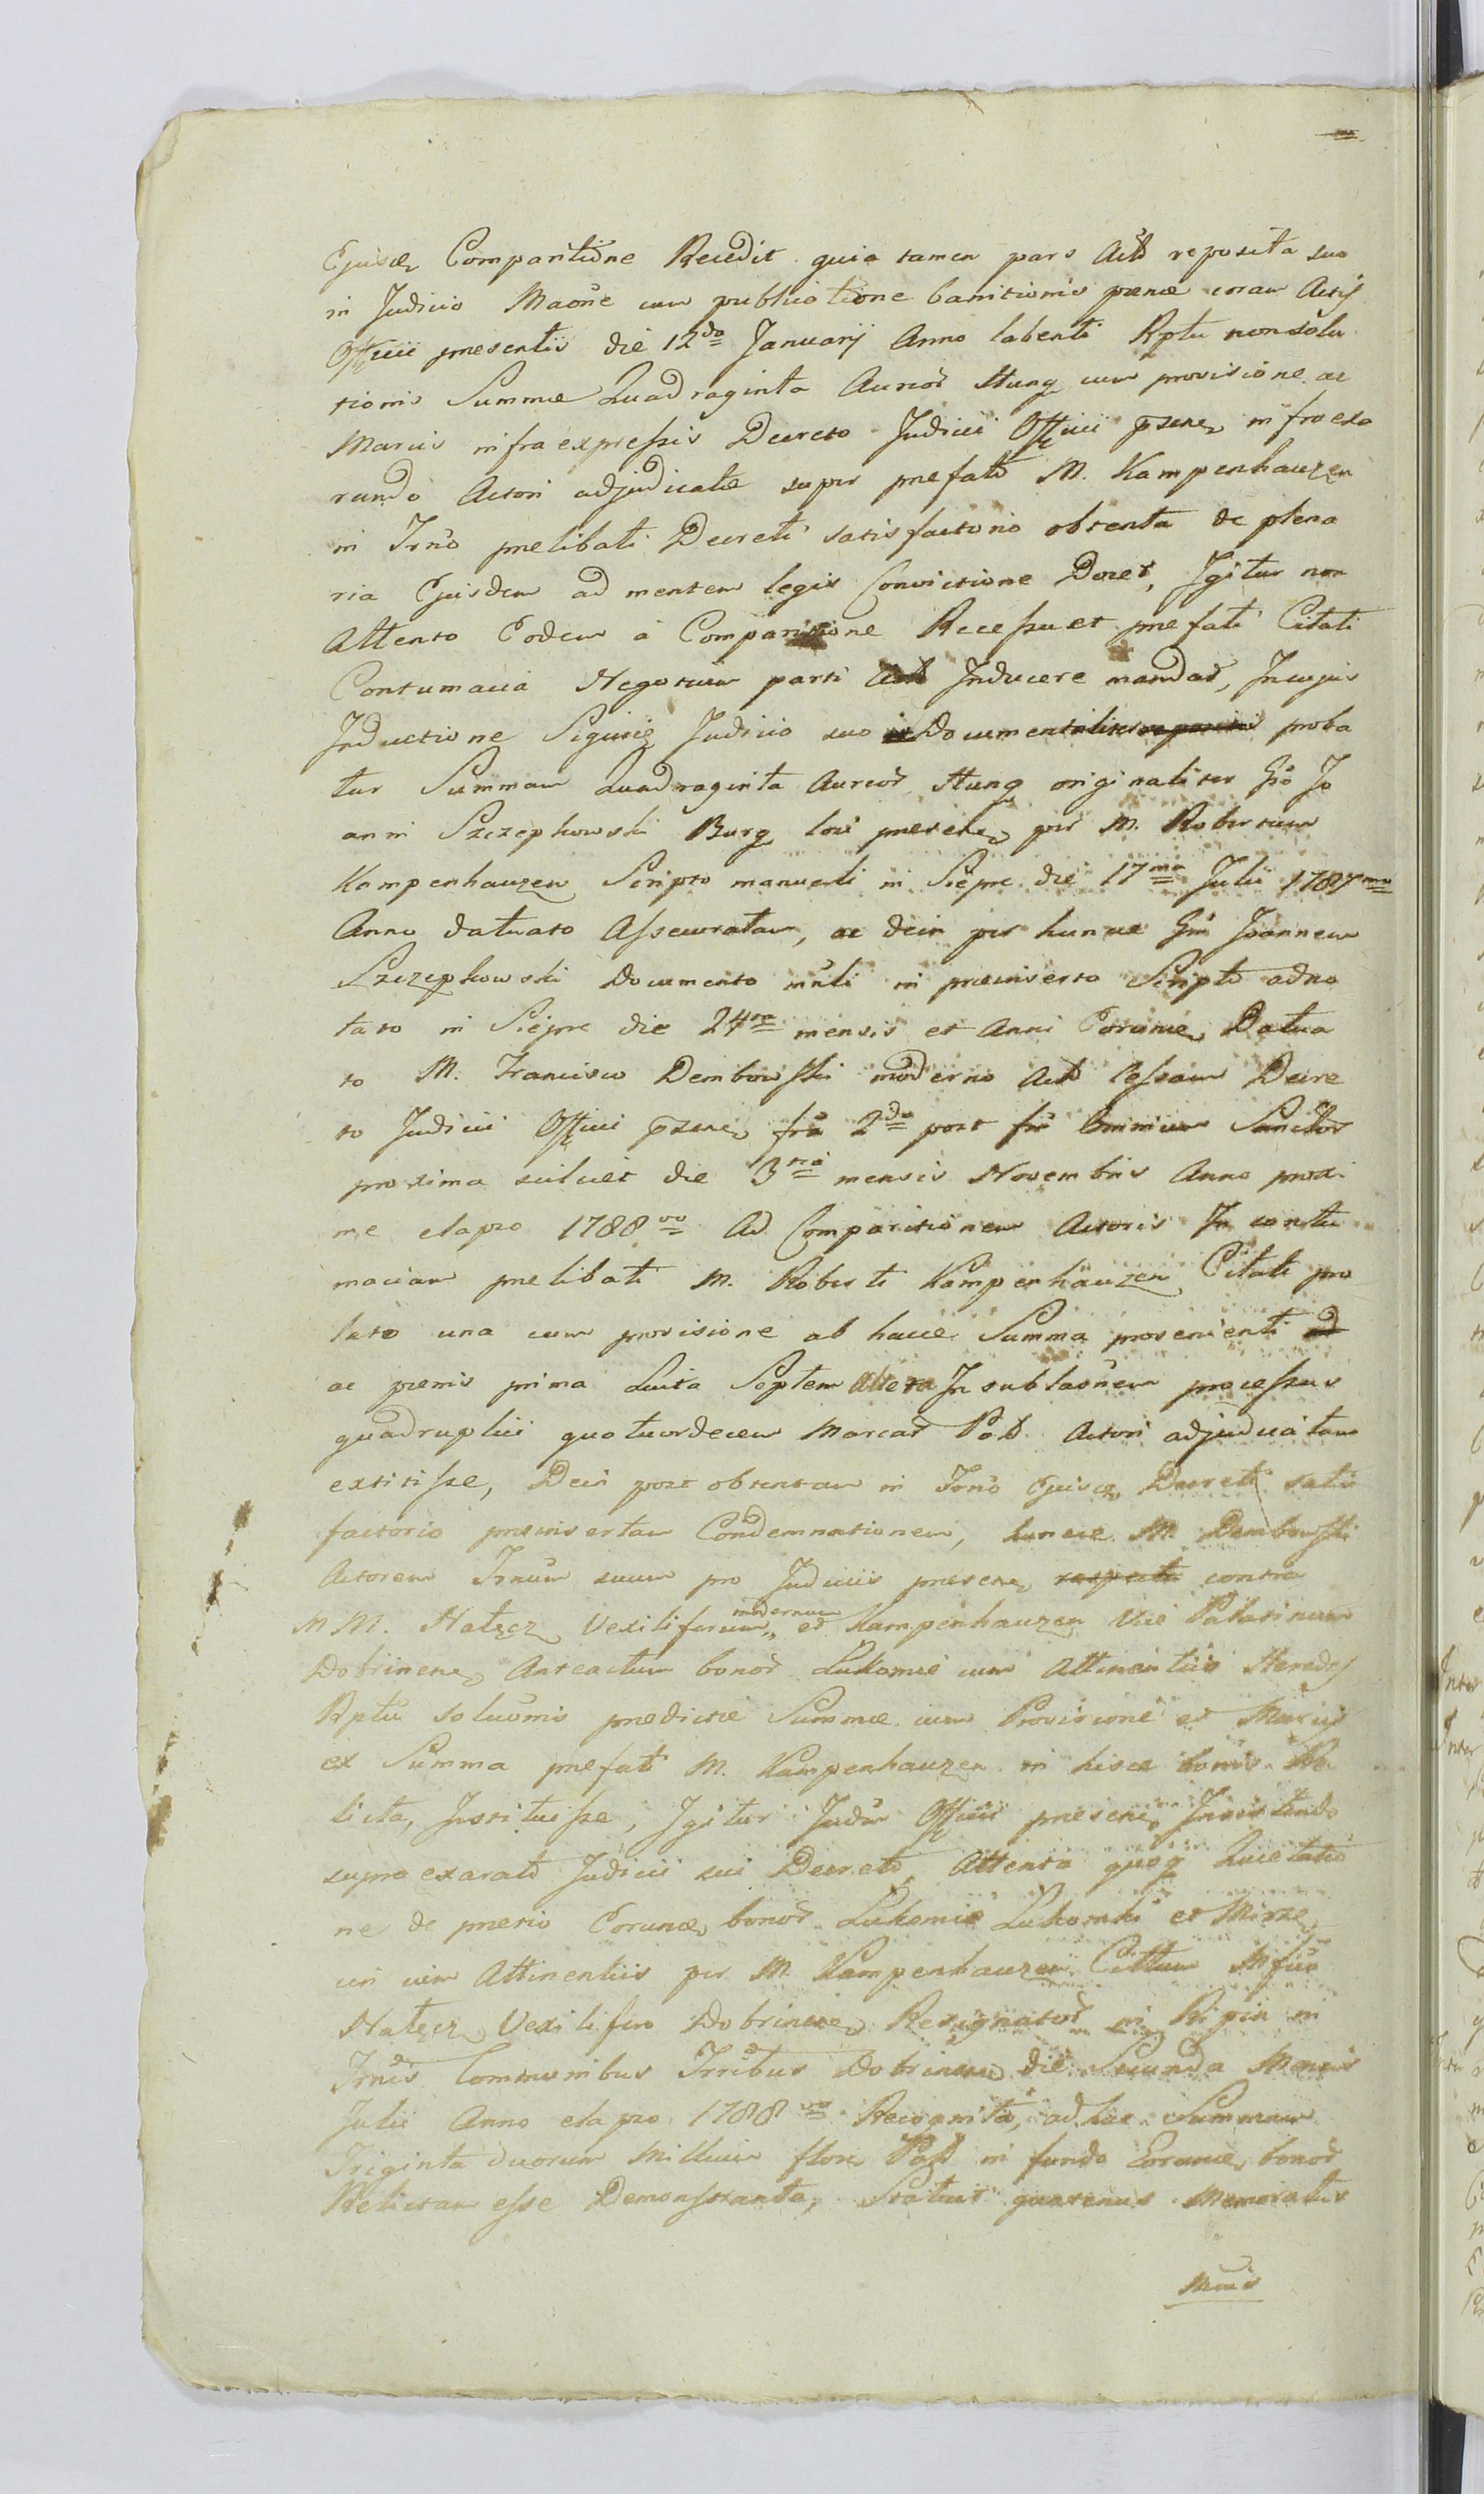 Ejusce Comparitione Recedit quia tamen pars Act reposita suo
in Judicio Maone cum publicatione banitionis pœnæ coram Actis
Officii presentis die 12do Januarij Anno labenti Rptu non solu
tionis Summæ Quadraginta Aureor Hung cum provisione ac
Marcis infra expressis Decreto Judicii Officii psene infra exa
rando Actori adjudicatæ super prefato M. Kampenhauzen
in Trno prelibati Decreti satisfactorio obtenta de plena
ria Ejusdem ad mentem legis Convictione Docet, Igitur non
Attento Eodem à Comparitione Recessu et prefati Citati
Contumacia Negotium parti Act Inducere mandat, In cujus
Inductione Siquie Judicio suo Documentaliter proba
tur Summam Quadraginta Aureor Hung originaliter Gso Jo
anni Szczepkowski Burg loci presene per M. Robertum
Kampenhauzen Scripto manuali in Siepre die 17ma Julii 1787mo
Anno datuato Assecuratam, ac dein per hunce Gm Joannem
Szczepkowski Documento mnli in præinserto Scripto adno
tato in Siepre die 24ta mensis et Anni Eorunce Datua
to M. Francisco Dembowski moderno Act Cessam Decre
to Judicii Officii psene fra 2da post fm Omnium Sanctor
proxima scilicet die 3tia mensis Novembris Anno proxi
me elapso 1788vo Ad Comparitionem Actoris In contu
maciam prelibati M. Roberti Kampenhauzen Citati pro
lato una cum provisione ab hacce Summa provenienti
ac pœnis prima Luita Septem altera In sublaonem processus
quadruplici quatuordecem Marcar Pol Actori adjudicatam
extitisse, Dein post obtentam in Trno Ejusce Decreti satis
factorio præinsertam Condemnationem, hunce M. Dembowski
Actorem Trnum suum pro Judiciis presene respectu contra
MM. Nałęcz Vexiliferum modernum et Kampenhauzen Vice Palatinum
Dobrinene Anteactum bonor Lukomie cum Attinentiis Heredes
Rptu soluonis predictæ Summæ cum Provisione et Marcis
ex Summa prefati M. Kampenhauzen in hisce bonis Re
licta, Instituisse, Igitur Judm Officii presene Insistendo
supra exarato Judicii sui Decreto, Attenta quoq Quietatio
ne de pretio Eorunce bonor Lukomie Lukomki et Mirze
cin cum Attinentiis per M. Kampenhauzen Cittum Mfico
Nałęcz Vexilifero Dobrinene Resignator in Ripin in
Trnis Communibus Trribus Dobrinene die Secunda Mensis
Julii Anno elapso 1788vo Recognita, adhæc Summam
Triginta duorum Millium flore Pol in fundo Eorunce bonor
Relictam esse Demonstranta, Statuit quatenus Memoratus